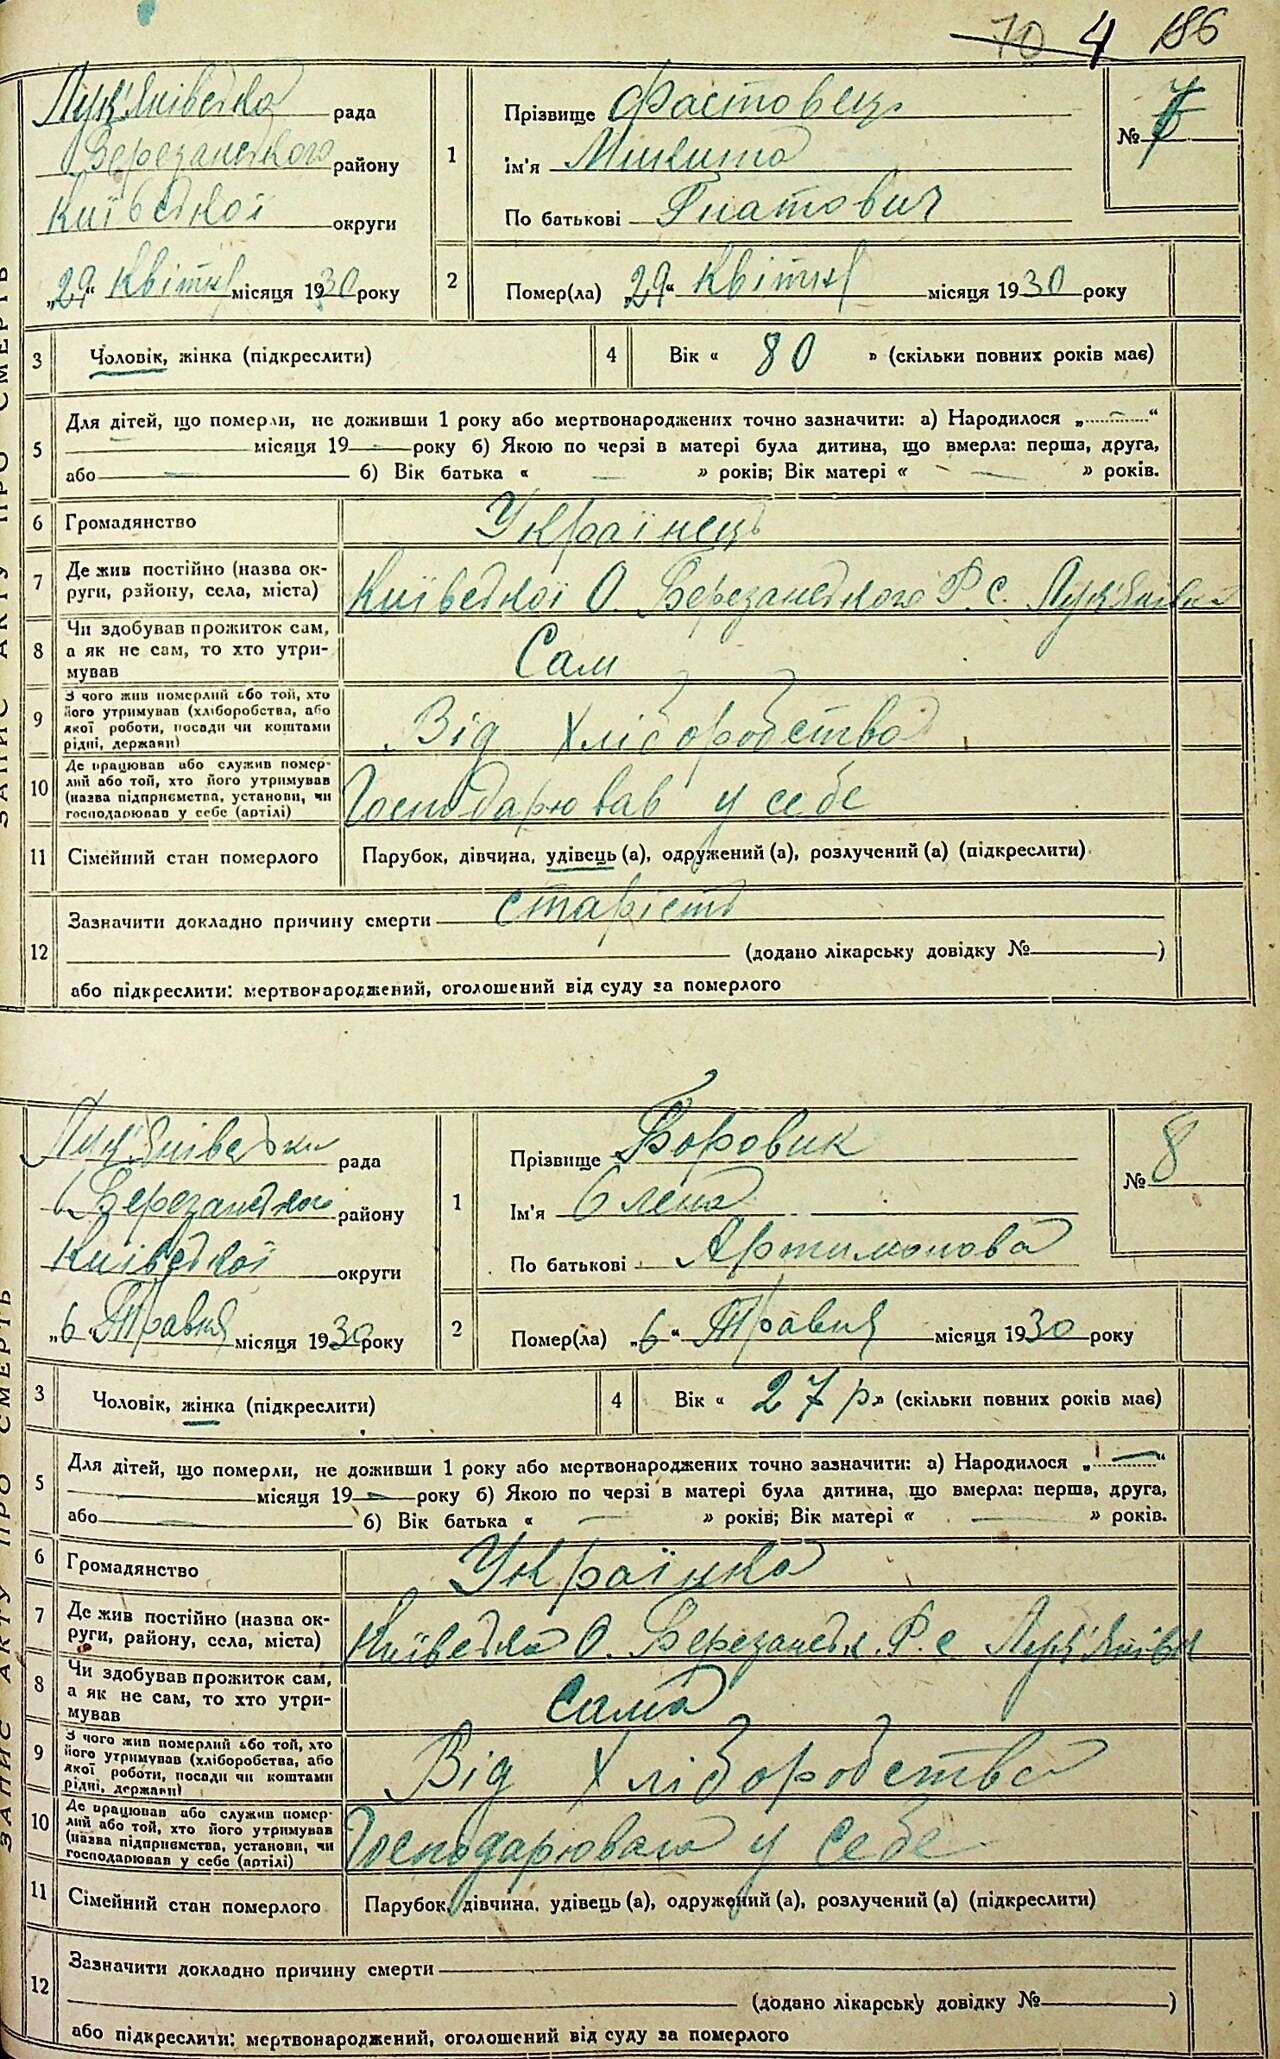 70 4 186
Лук'янівська рада
Березанського району
Київської округи
„29“ Квітня місяця 1930 року
1
Прізвище Фастовець
Ім'я Микита
По батькові Гнатович
№ 7
2
Помер(ла) „29“ Квітня місяця 1930 року
3 Чоловік, жінка (підкреслити)
4 Вік « 80 » (скільки повних років має)
5
Для дітей, що померли, не доживши 1 року або мертвонароджених точно зазначити: а) Народилося „ — “
— місяця 19 — року б) Якою по черзі в матері була дитина, що вмерла: перша, друга,
або — б) Вік батька « — » років; Вік матері « — » років.
6 Громадянство Українець
7 Де жив постійно (назва ок-
руги, району, села, міста) Київської О. Березанського Р. с. Лук'янівка
8 Чи здобував прожиток сам,
а як не сам, то хто утри-
мував Сам
9 З чого жив померлий або той, хто
його утримував (хліборобства, або
якої роботи, посади чи коштами
рідні, держави) Від Хліборобства
10 Де працював або служив помер-
лий або той, хто його утримував
(назва підприємства, установи, чи
господарював у себе (артілі) Господарював у себе
11 Сімейний стан померлого Парубок, дівчина, удівець (а), одружений (а), розлучений (а) (підкреслити)
12
Зазначити докладно причину смерти старість
(додано лікарську довідку № )
або підкреслити: мертвонароджений, оголошений від суду за померлого
ЗАПИС АКТУ ПРО СМЕРТЬ
Лук'янівська рада
Березанського району
Київської округи
„6“ Травня місяця 1930 року
1
Прізвище Боровик
Ім'я Олена
По батькові Артимонова
№ 8
2
Помер(ла) „6“ Травня місяця 1930 року
3 Чоловік, жінка (підкреслити)
4 Вік « 27 р. » (скільки повних років має)
5
Для дітей, що померли, не доживши 1 року або мертвонароджених точно зазначити: а) Народилося „ — “
— місяця 19 — року б) Якою по черзі в матері була дитина, що вмерла: перша, друга,
або — б) Вік батька « — » років; Вік матері « — » років.
6 Громадянство Українка
7 Де жив постійно (назва ок-
руги, району, села, міста) Київська О. Березанськ. Р. с Лук'янівка
8 Чи здобував прожиток сам,
а як не сам, то хто утри-
мував Сама
9 З чого жив померлий або той, хто
його утримував (хліборобства, або
якої роботи, посади чи коштами
рідні, держави) Від Хліборобства
10 Де працював або служив помер-
лий або той, хто його утримував
(назва підприємства, установи, чи
господарював у себе (артілі) Господарювала у себе
11 Сімейний стан померлого Парубок, дівчина, удівець (а), одружений (а), розлучений (а) (підкреслити)
12
Зазначити докладно причину смерти
(додано лікарську довідку № )
або підкреслити: мертвонароджений, оголошений від суду за померлого
ЗАПИС АКТУ ПРО СМЕРТЬ